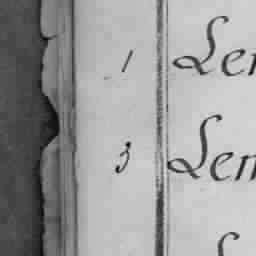 1 Len
3 Lem